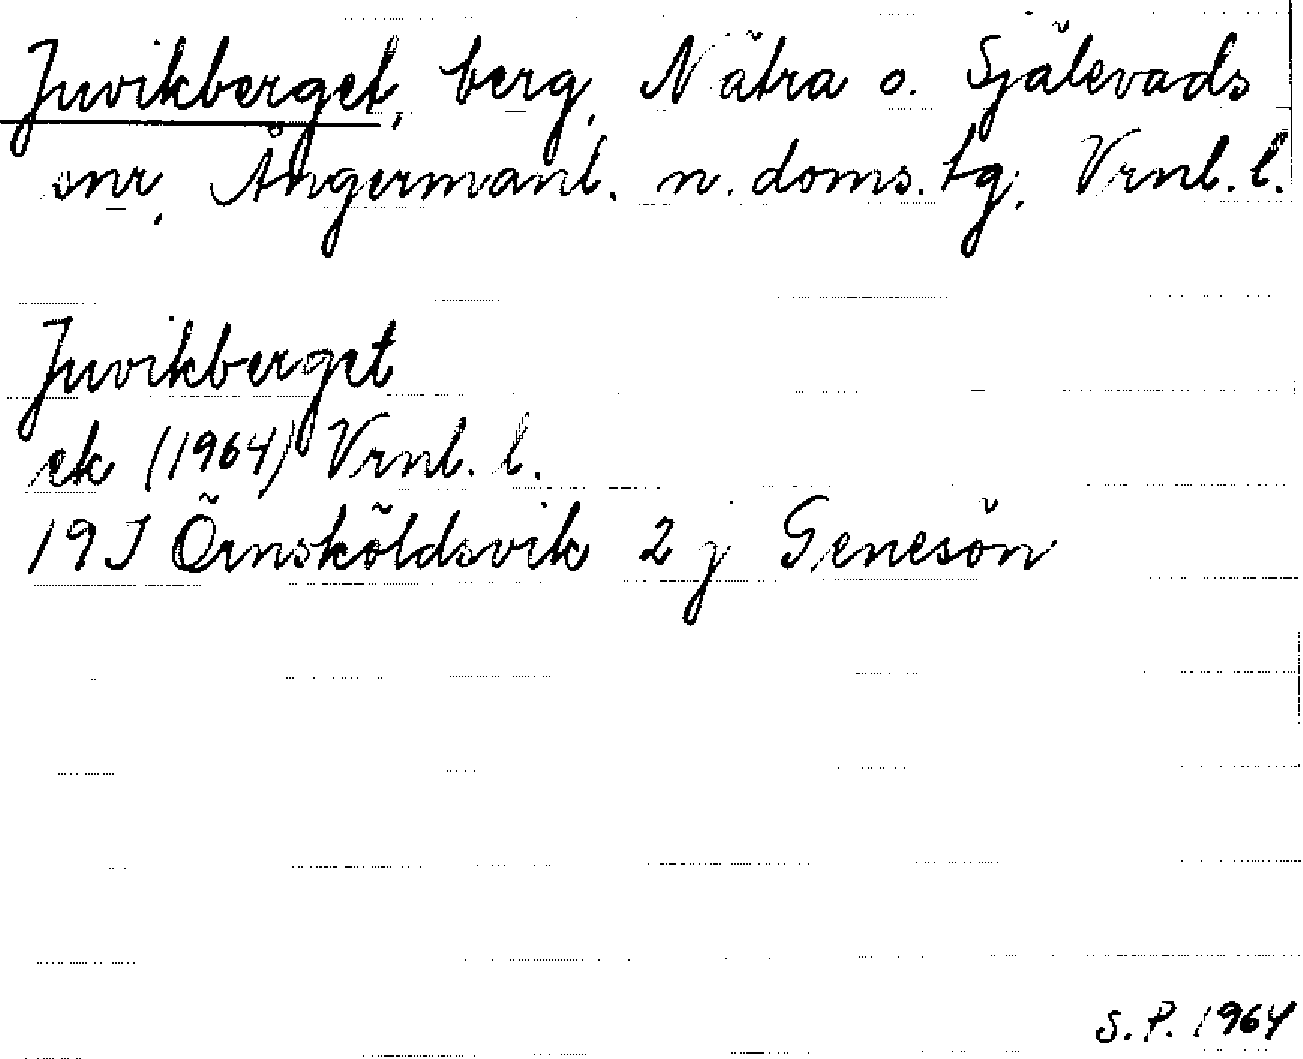 Juvikberget, berg, Nätra o. Själevads
snr, Ångermanl. n. doms.tg, Vrnl. l.
Juvikberget
ek (1964) Vrnl. l.
19 J Örnsköldsvik 2 j Genesön
S. P. 1964